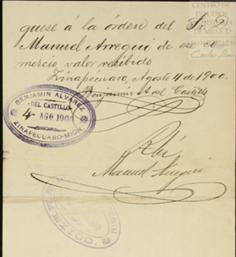 quese á la órden del S. D.
Manuel Arregui de ese co
mercio valor recibido
Zinapécuaro, Agosto 4 de 1900.
Benjamin A. del Castillo
BENJAMIN ALVAREZ
DEL CASTILLO
4 AGO 1900
ZINAPECUARO-MICH
Rbí
Manuel Arregui